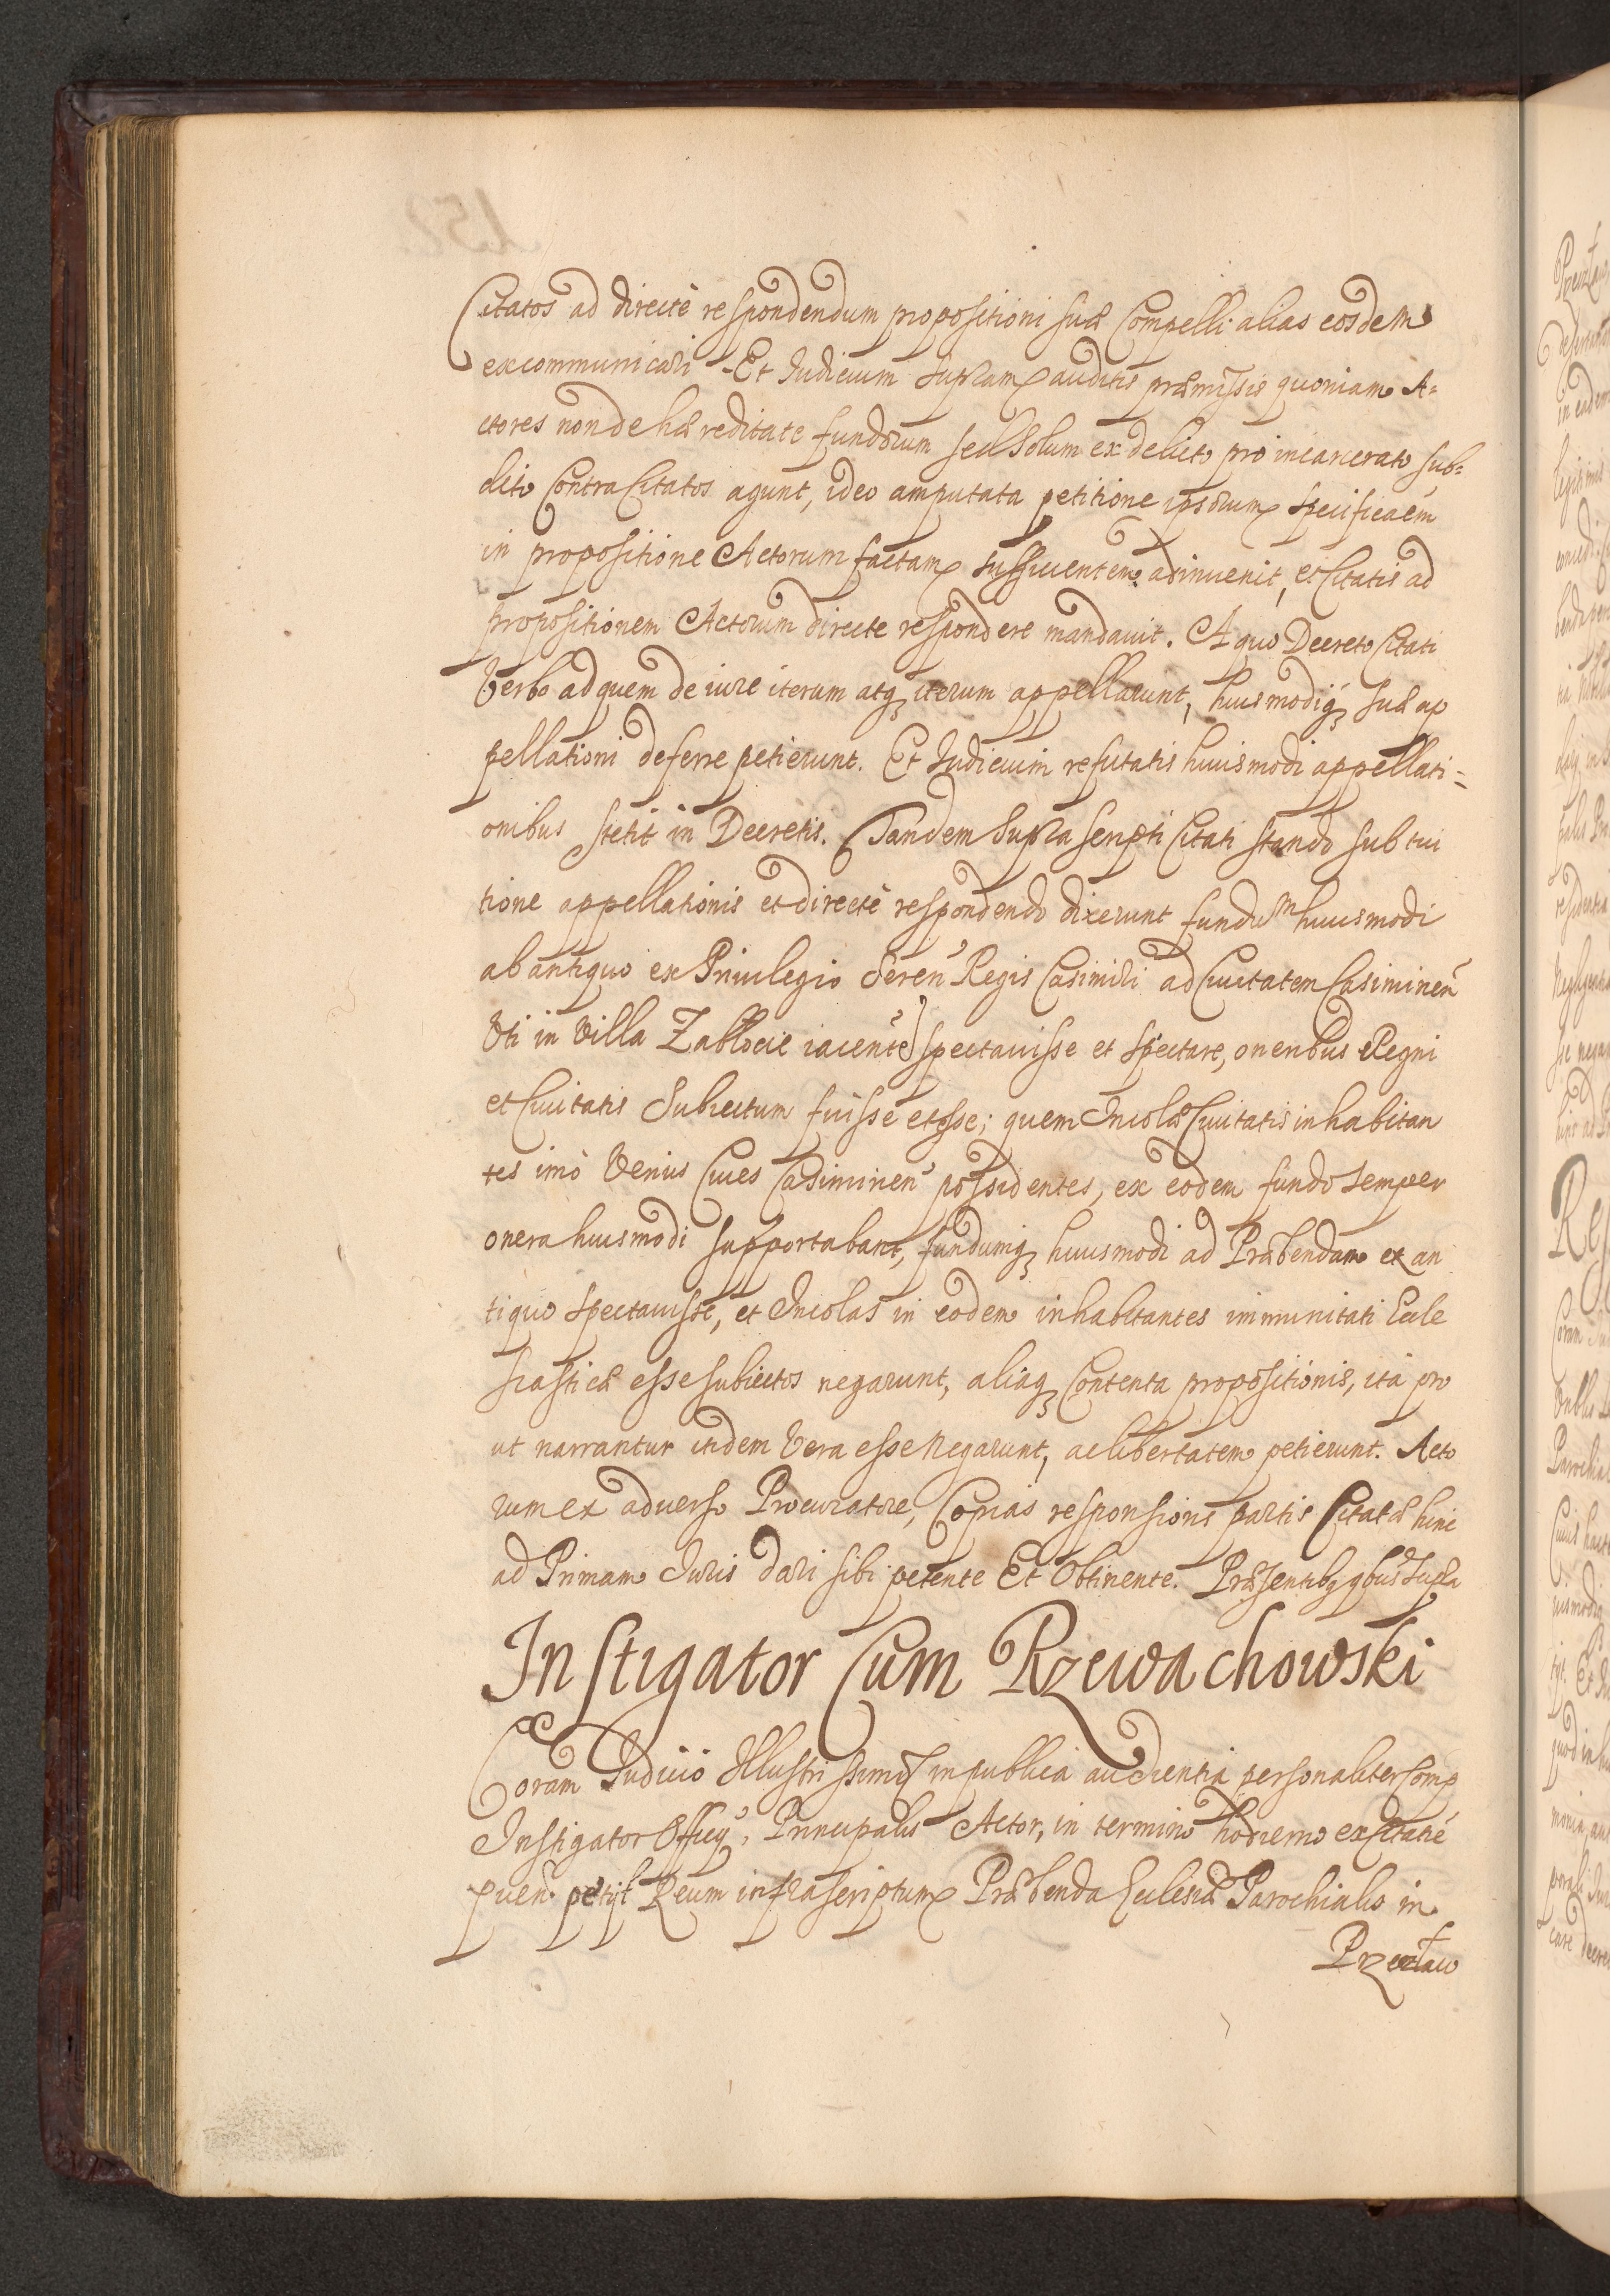 Citatos ad directè respondendum propositioni suæ Compelli alias eosdem
excommunicari. Et Iudicium supram auditis præmissis quoniam A=
ctores non de hæreditate fundorum sed Solum ex delicto pro incarcerato sub=
dito Contra Citatos agunt, ideo amputata petitione ipsorum specificaem
in propositione Actorum factam sufficientem adinuenit, et Citatis ad
propositionem Actorum directe respondere mandauit. A quo Decreto Citati
Verbo ad quem de iure iterum atq iterum appellarunt, huiusmodiq suæ ap
pellationi deferre petierunt. Et Iudicium refutatis huiusmodi appellati=
onibus stetit in Decretis. Tandem Supra scripti Citati stando sub tui
tione appellationis et directè respondendo dixerunt fundum huiusmodi
ab antiquo ex Priuilegio Seren Regis Casimiri ad Ciuitatem Casimirien
Uti in Villa Zablocie iacente spectauisse et spectare, oneribus Regni
et Ciuitatis Subiectum fuisse et esse; quem Incolæ Ciuitatis inhabitan
tes imò Verius Ciues Casimirien possidentes, ex eodem fundo semper
onera huiusmodi supportabant, fundumq huiusmodi ad Præbendam ex an
tiquo spectauisse, et Incolas in eodem inhabitantes immunitati Eccle
siasticæ esse subiectos negarunt, aliaq Contenta propositionis, ità pro
ut narrantur itidem Vera esse negarunt, ac libertatem petierunt. Acto
rum ex aduerso Procuratore, Copias responsionis partis Citatæ hinc
ad Primam Iuris dari sibi petente Et Obtinente. Præsentibq qbus supra
Instigator Cum Rzewachowski
Coram Iudicio Illustrissimi in publica audientia personaliter Comp
Instigator Officij, Principalis Actor, in termino hodierno ex Citatiè
puen petijt Reum infrascriptum Præbenda Ecclesiæ Parochialis in